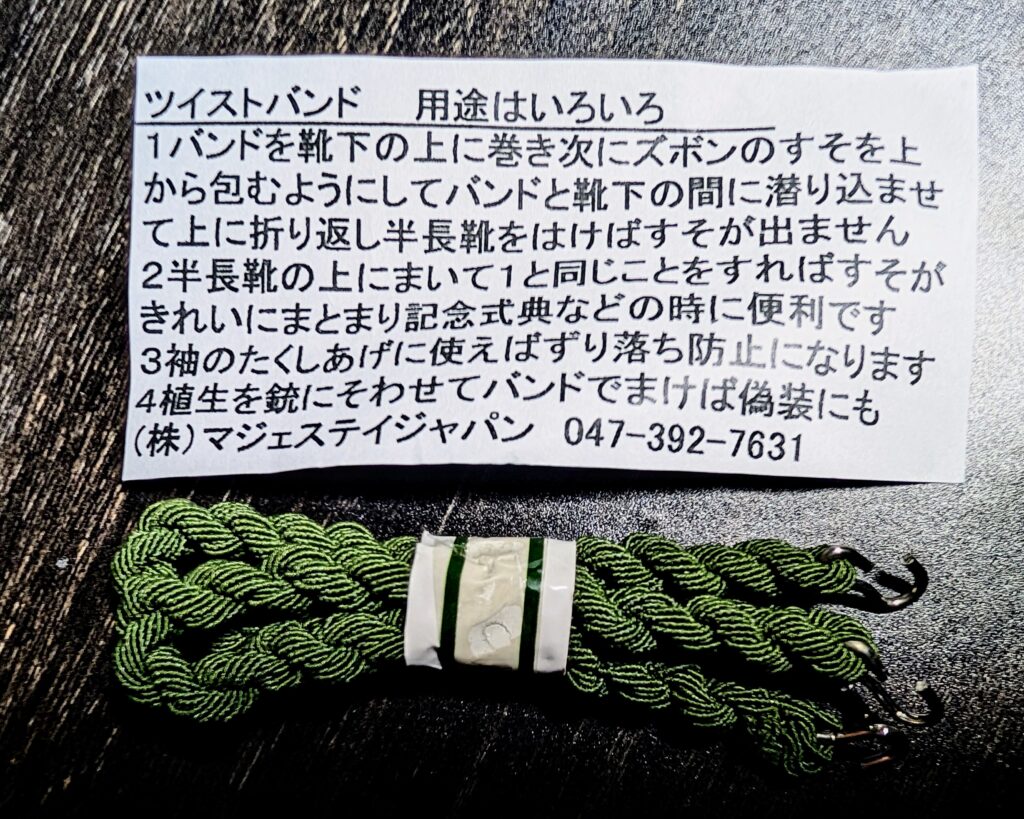 ツイストバンド　用途はいろいろ
1バンドを靴下の上に巻き次にズボンのすそを上
から包むようにしてバンドと靴下の間に潜り込ませ
て上に折り返し半長靴をはけばすそが出ません
2半長靴の上にまいて1と同じことをすればすそが
きれいにまとまり記念式典などの時に便利です
3袖のたくしあげに使えばずり落ち防止になります
4植生を銃にそわせてバンドでまけば偽装にも
(株)マジェステイジャパン　047-392-7631